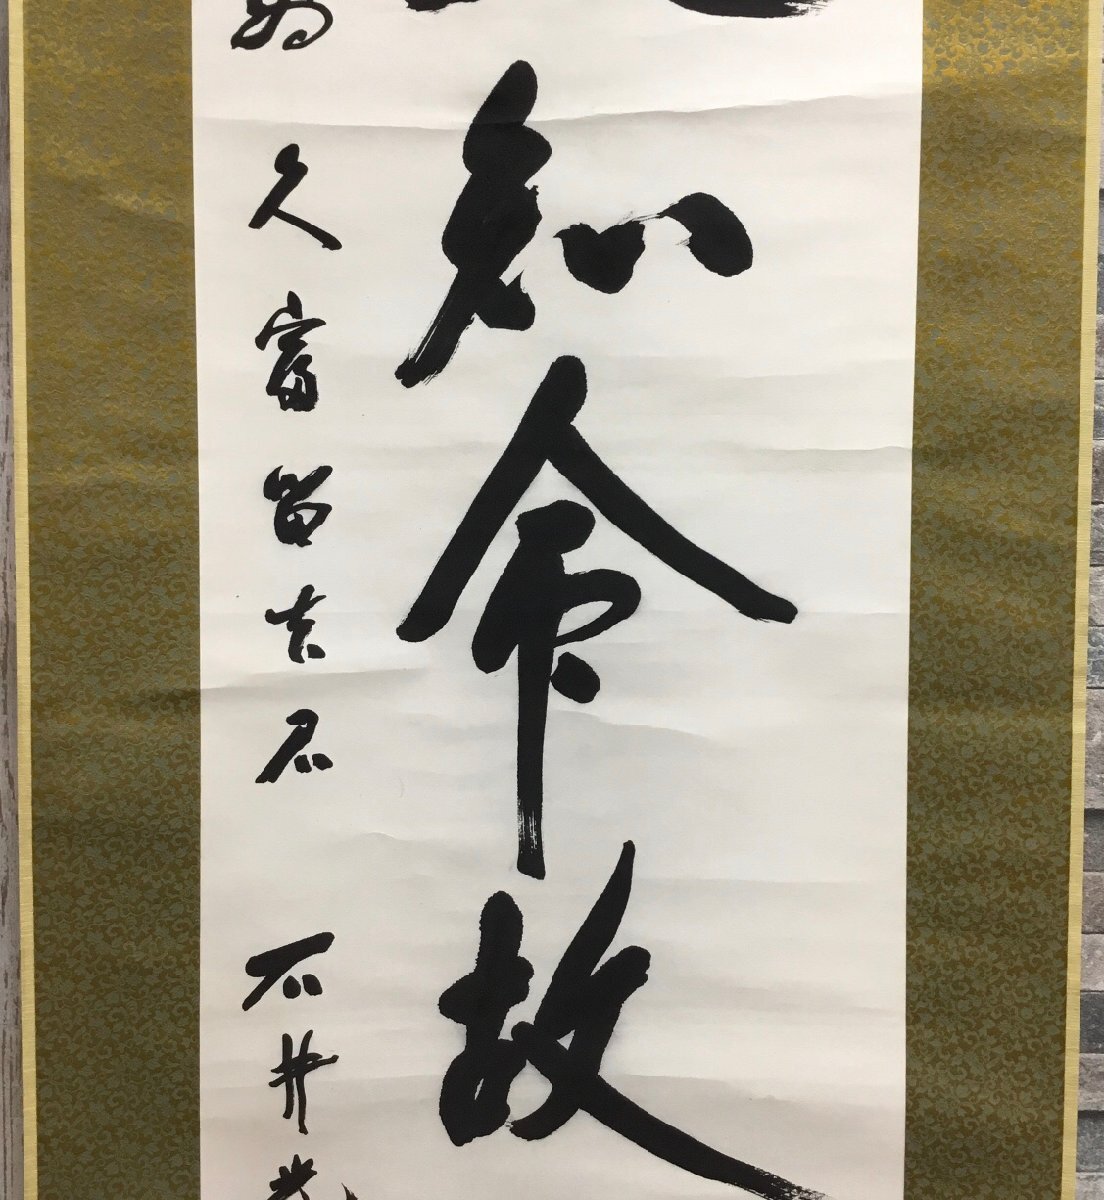 知命故
為 久富留吉君 石井光